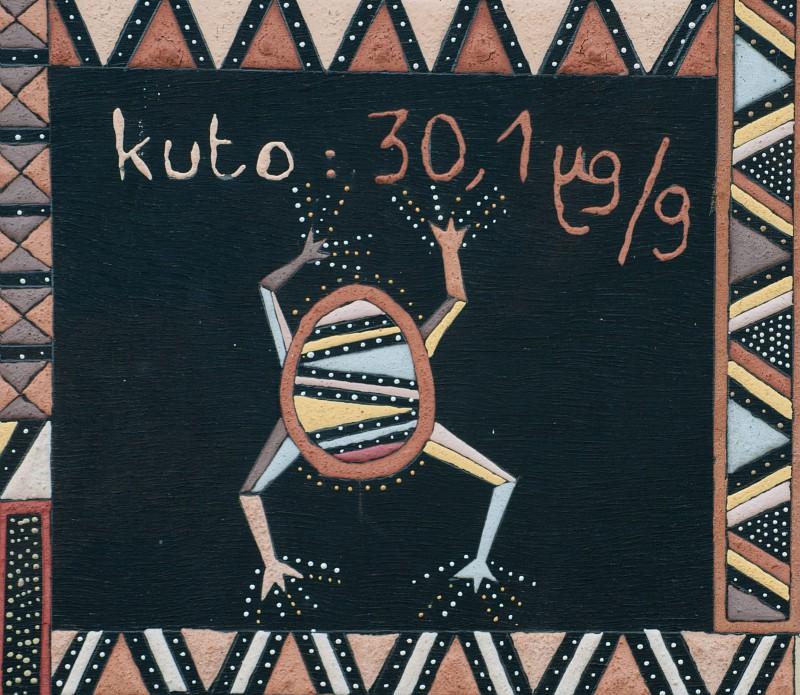 kuto : 30,1 µg/g